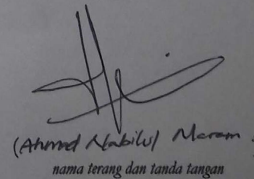 (Ahmad Nabilul Maram
nama terang dan tanda tangan